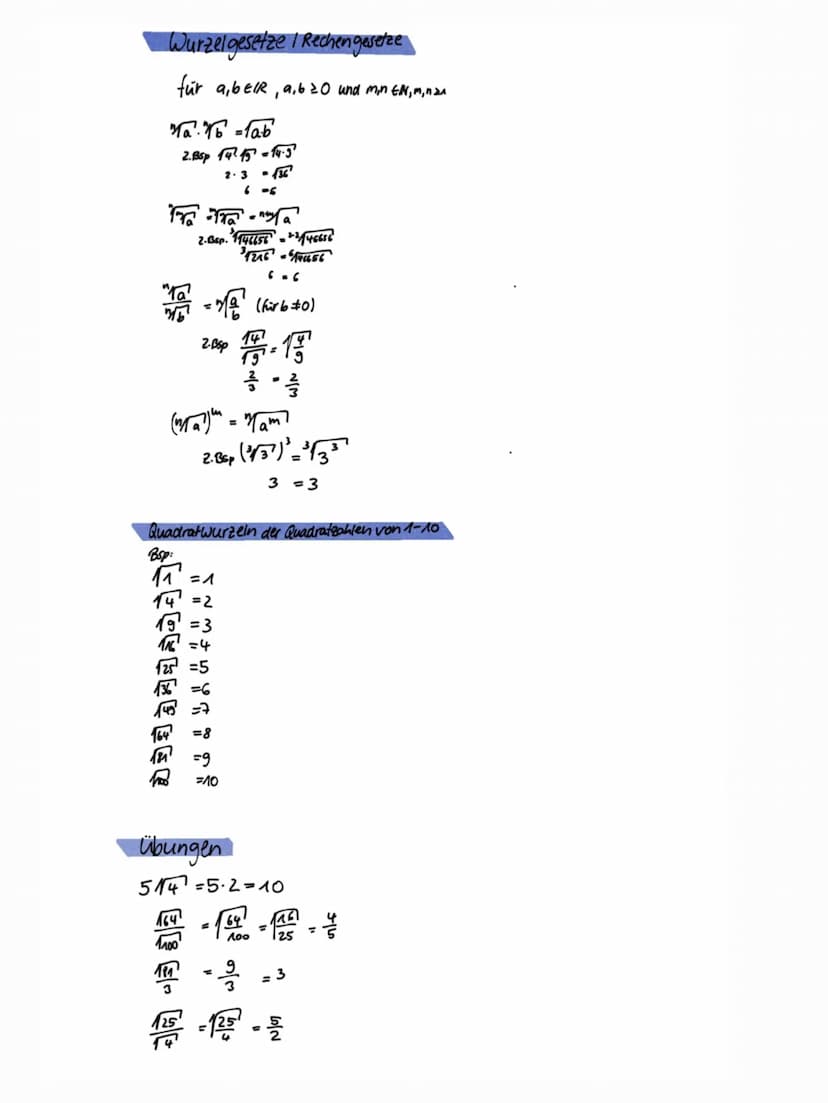 Wurzelgesetze / Rechengesetze
für a,b ∈ ℝ, a,b ≥ 0 und m,n ∈ ℕ, m,n ≥ 1
ⁿ√a · ⁿ√b = ⁿ√ab
z.Bsp √4 · √9 = √4·9
2 · 3 = √36
6 = 6
ᵐ√ⁿ√a = ⁿ√ᵐ√a = ⁿ·ᵐ√a
z.Bsp. ³√√46656 = ²·³√46656
³√216 = ⁶√46656
6 = 6
ⁿ√a / ⁿ√b = ⁿ√a/b (für b ≠ 0)
z.Bsp √4 / √9 = √4/9
2/3 = 2/3
(ⁿ√a)ᵐ = ⁿ√aᵐ
z.Bsp (³√3)³ = ³√3³
3 = 3
Quadratwurzeln der Quadratzahlen von 1-10
Bsp:
√1 = 1
√4 = 2
√9 = 3
√16 = 4
√25 = 5
√36 = 6
√49 = 7
√64 = 8
√81 = 9
√100 = 10
Übungen
5√4 = 5·2 = 10
√64 / √100 = √64/100 = √16/25 = 4/5
√81 / 3 = 9/3 = 3
√25 / √4 = √25/4 = 5/2